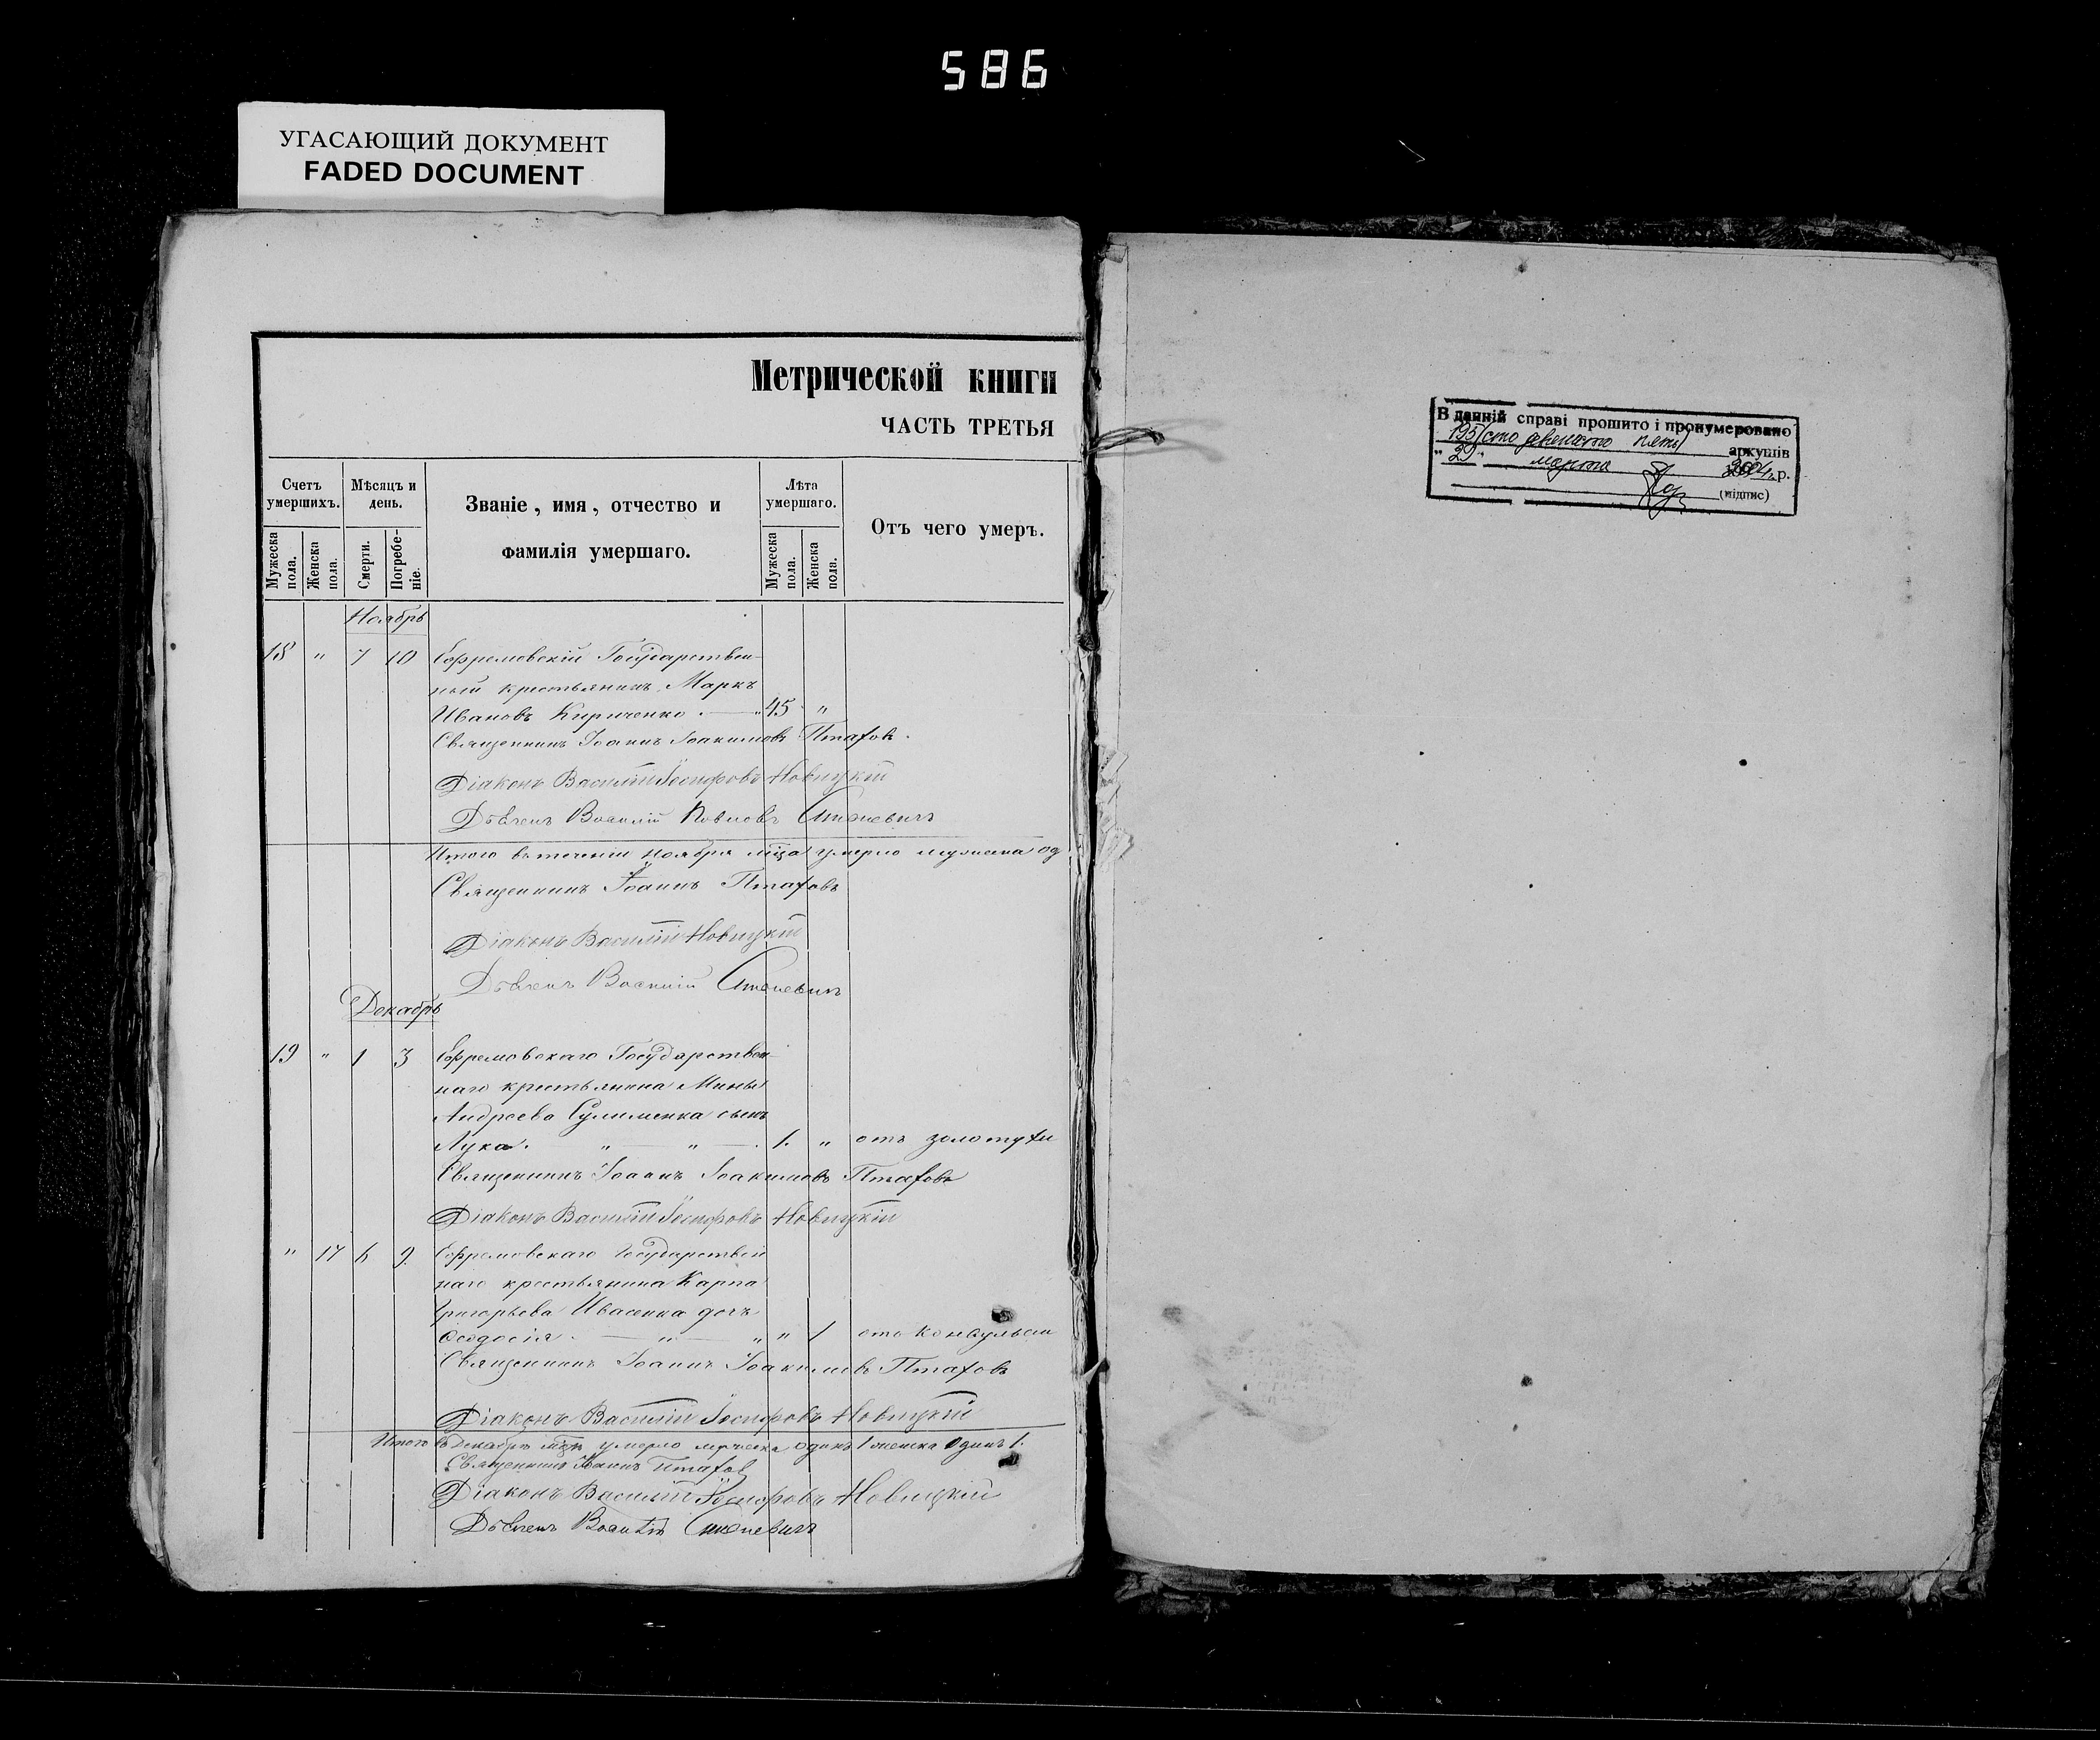 586
УГАСАЮЩИЙ ДОКУМЕНТ
FADED DOCUMENT
Метрической книги
ЧАСТЬ ТРЕТЬЯ
Счетъ умершихъ.
Мѣсяцъ и день.
Званіе, имя, отчество и фамилія умершаго.
Лѣта умершаго.
Отъ чего умеръ.
Мужеска пола.
Женска пола.
Смерти.
Погребеніе.
Мужеска пола.
Женска пола.
Ноябрь
18 " 7 10 Ефремовскій Государствен-
ный крестьянинъ Маркъ
Ивановъ Кириченко . — " 45 "
Священникъ Іоаннъ Іоакимовъ Птаховъ.
Діаконъ Василій Іосифовъ Новицкій
Дьячекъ Василій Павловъ
Итого въ теченіи ноября мца умерло мужеска од
Священникъ Іоаннъ Птаховъ
Діаконъ Василій Новицкій
Дьячекъ Василій
Декабрь
19 " 1 3 Ефремовскаго Государствен-
наго крестьянина Мины
Андреева Сулименка сынъ
Лука. " — " — . 1. " отъ золотухи
Священникъ Іоаннъ Іоакимовъ Птаховъ
Діаконъ Василій Іосифовъ Новицкій
" 17 6 9 Ефремовскаго Государствен
наго крестьянина Карпа
Григорьева Ивасенка дочь
Феодосія . — " — " " 1 отъ
Священникъ Іоаннъ Іоакимовъ Птаховъ
Діаконъ Василій Іосифовъ Новицкій
Итого въ Декабрѣ мцѣ умерло мужеска одинъ 1 женска одинъ 1.
Священникъ Іоаннъ Птаховъ
Діаконъ Василій Іосифовъ Новицкій
Дьячекъ Василій
В данній справі прошито і пронумеровано
195 (сто девяносто пять) аркушів
" 29 " марта 2004 р.
(підпис)